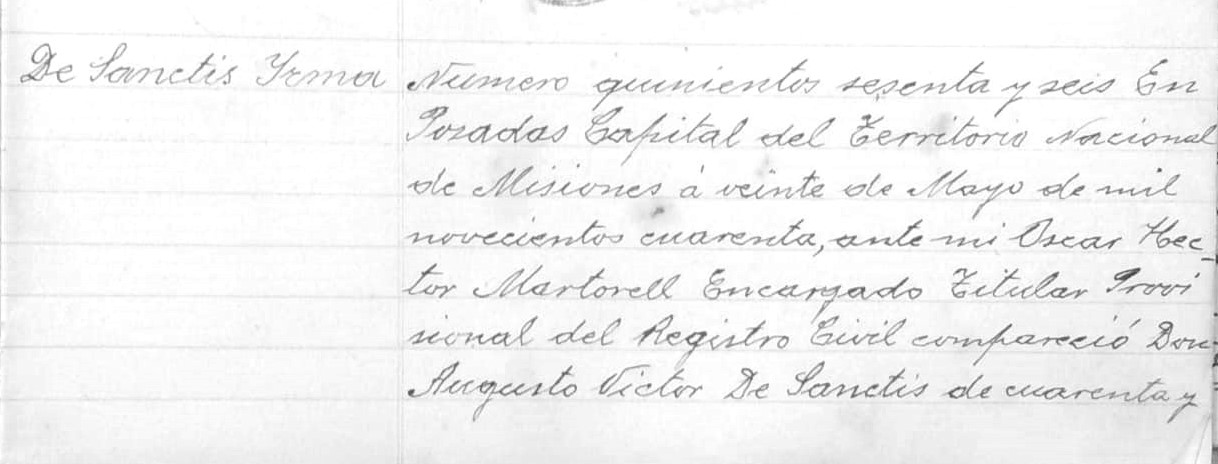 De Sanctis Yrma
Numero quinientos sesenta y seis En
Posadas Capital del Territorio Nacional
de Misiones á veinte de Mayo de mil
novecientos cuarenta, ante mi Oscar Hec-
tor Martorell Encargado Titular Provi
sional del Registro Civil compareció Don
Augusto Victor De Sanctis de cuarenta y